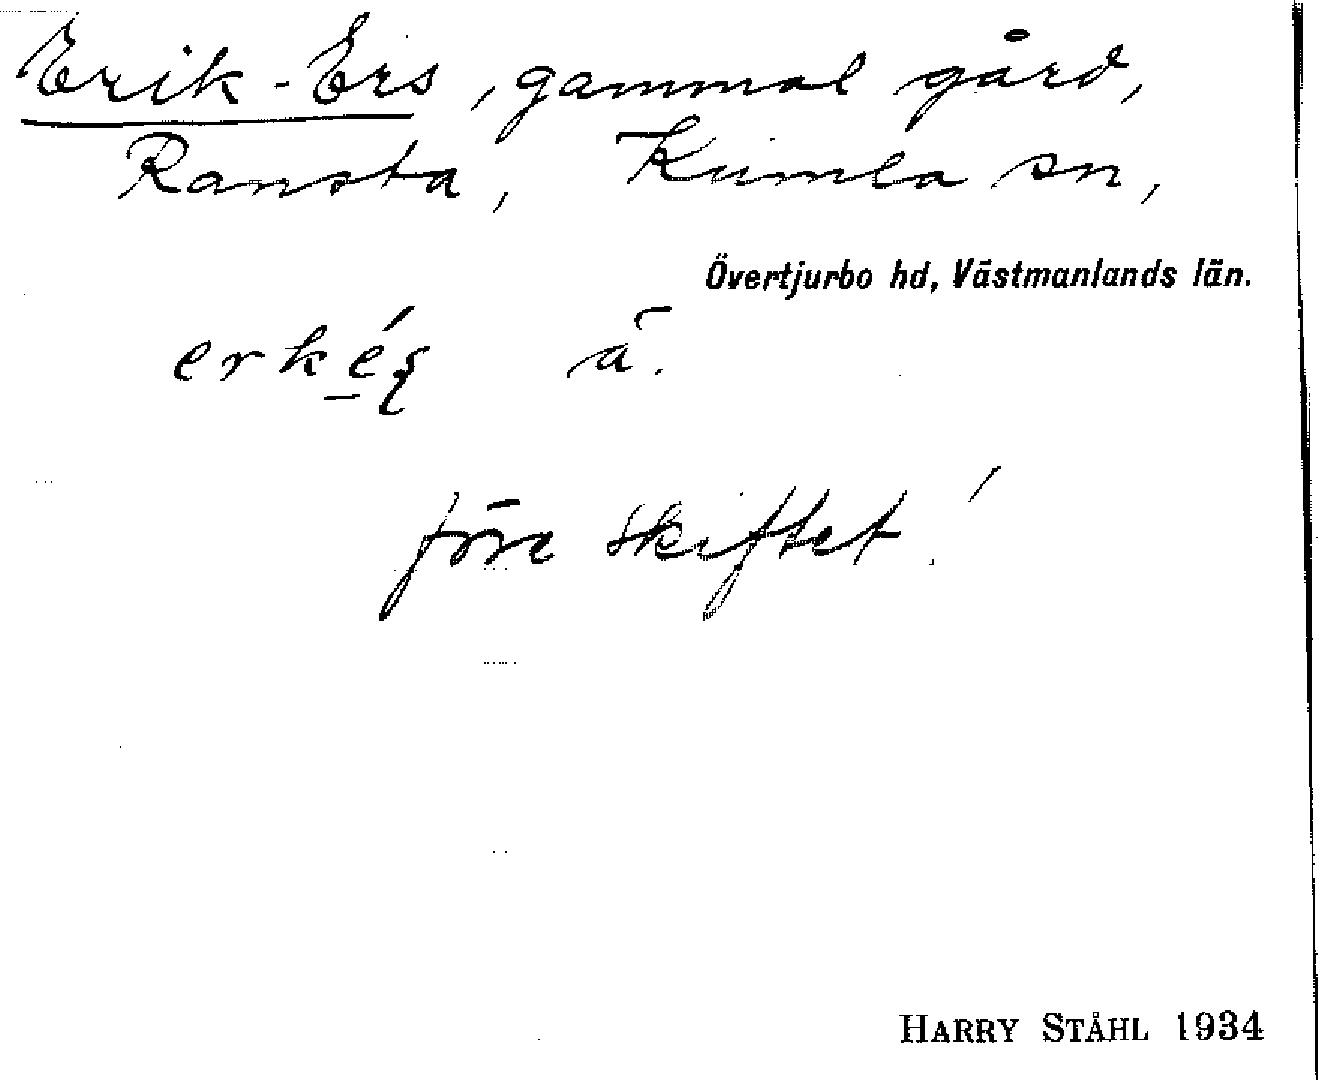 Erik-Ers, gammal gård,
Ransta, Kumla sn,
Övertjurbo hd, Västmanlands län.
ä.
före skiftet!
HARRY STÅHL 1934